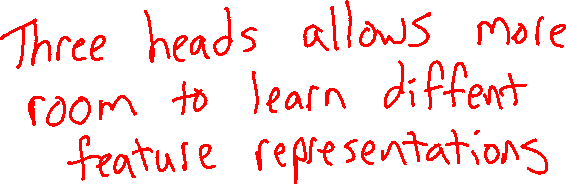 Three heads allows more
room to learn diffent
feature representations